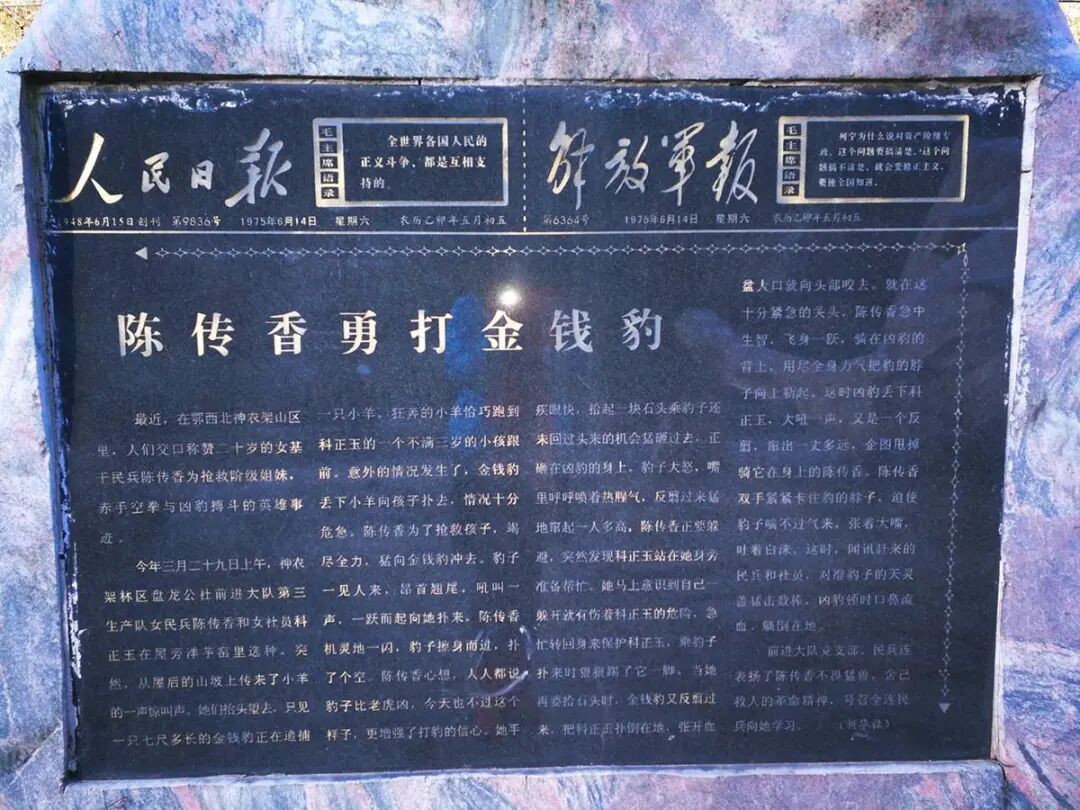 人民日报
毛主席语录
全世界各国人民的
正义斗争，都是互相支
持的。
1948年6月15日创刊 第9836号 1975年6月14日 星期六 农历乙卯年五月初五
解放军报
毛主席语录
列宁为什么说对资产阶级专
政，这个问题要搞清楚。这个问
题搞不清楚，就会变修正主义。
要使全国知道。
第6364号 1975年6月14日 星期六 农历乙卯年五月初五
陈传香勇打金钱豹
最近，在鄂西北神农架山区
里，人们交口称赞二十岁的女基
干民兵陈传香为抢救阶级姐妹，
赤手空拳与凶豹搏斗的英雄事
迹。
今年三月二十九日上午，神农
架林区盘龙公社前进大队第三
生产队女民兵陈传香和女社员科
正玉在屋旁洋芋窑里选种。突
然，从屋后的山坡上传来了小羊
的一声惊叫声。她们抬头望去，只见
一只七尺多长的金钱豹正在追捕
一只小羊。狂奔的小羊恰巧跑到
科正玉的一个不满三岁的小孩跟
前。意外的情况发生了，金钱豹
丢下小羊向孩子扑去，情况十分
危急。陈传香为了抢救孩子，竭
尽全力，猛向金钱豹冲去。豹子
一见人来，昂首翘尾，吼叫一
声，一跃而起向她扑来。陈传香
机灵地一闪，豹子擦身而过，扑
了个空。陈传香心想，人人都说
豹子比老虎凶，今天也不过这个
样子，更增强了打豹的信心。她手
疾眼快，拾起一块石头乘豹子还
未回过头来的机会猛砸过去，正
砸在凶豹的身上，豹子大怒，嘴
里呼呼喷着热腥气，反扇过来猛
地窜起一人多高，陈传香正要躲
避，突然发现科正玉站在她身旁
准备帮忙。她马上意识到自己一
躲开就有伤着科正玉的危险，急
忙转回身来保护科正玉，乘豹子
扑来时狠狠踢了它一脚。当她
再要拾石头时，金钱豹又反扇过
来，把科正玉扑倒在地，张开血
盆人口就向头部咬去。就在这
十分紧急的关头，陈传香急中
生智，飞身一跃，骑在凶豹的
背上，用尽全身力气把豹的脖
子向上勒起。这时凶豹丢下科
正玉，大吼一声，又是一个反
剪，窜出一丈多远，企图甩掉
骑它在身上的陈传香。陈传香
双手紧紧卡住豹的脖子，迫使
豹子喘不过气来，张着大嘴，
吐着白沫。这时，闻讯赶来的
民兵和社员，对准豹子的天灵
盖猛击数棒，凶豹顿时口鼻流
血，躺倒在地。
前进大队党支部、民兵连
表扬了陈传香不畏猛兽，舍己
救人的革命精神，号召全连民
兵向她学习。（新华社）